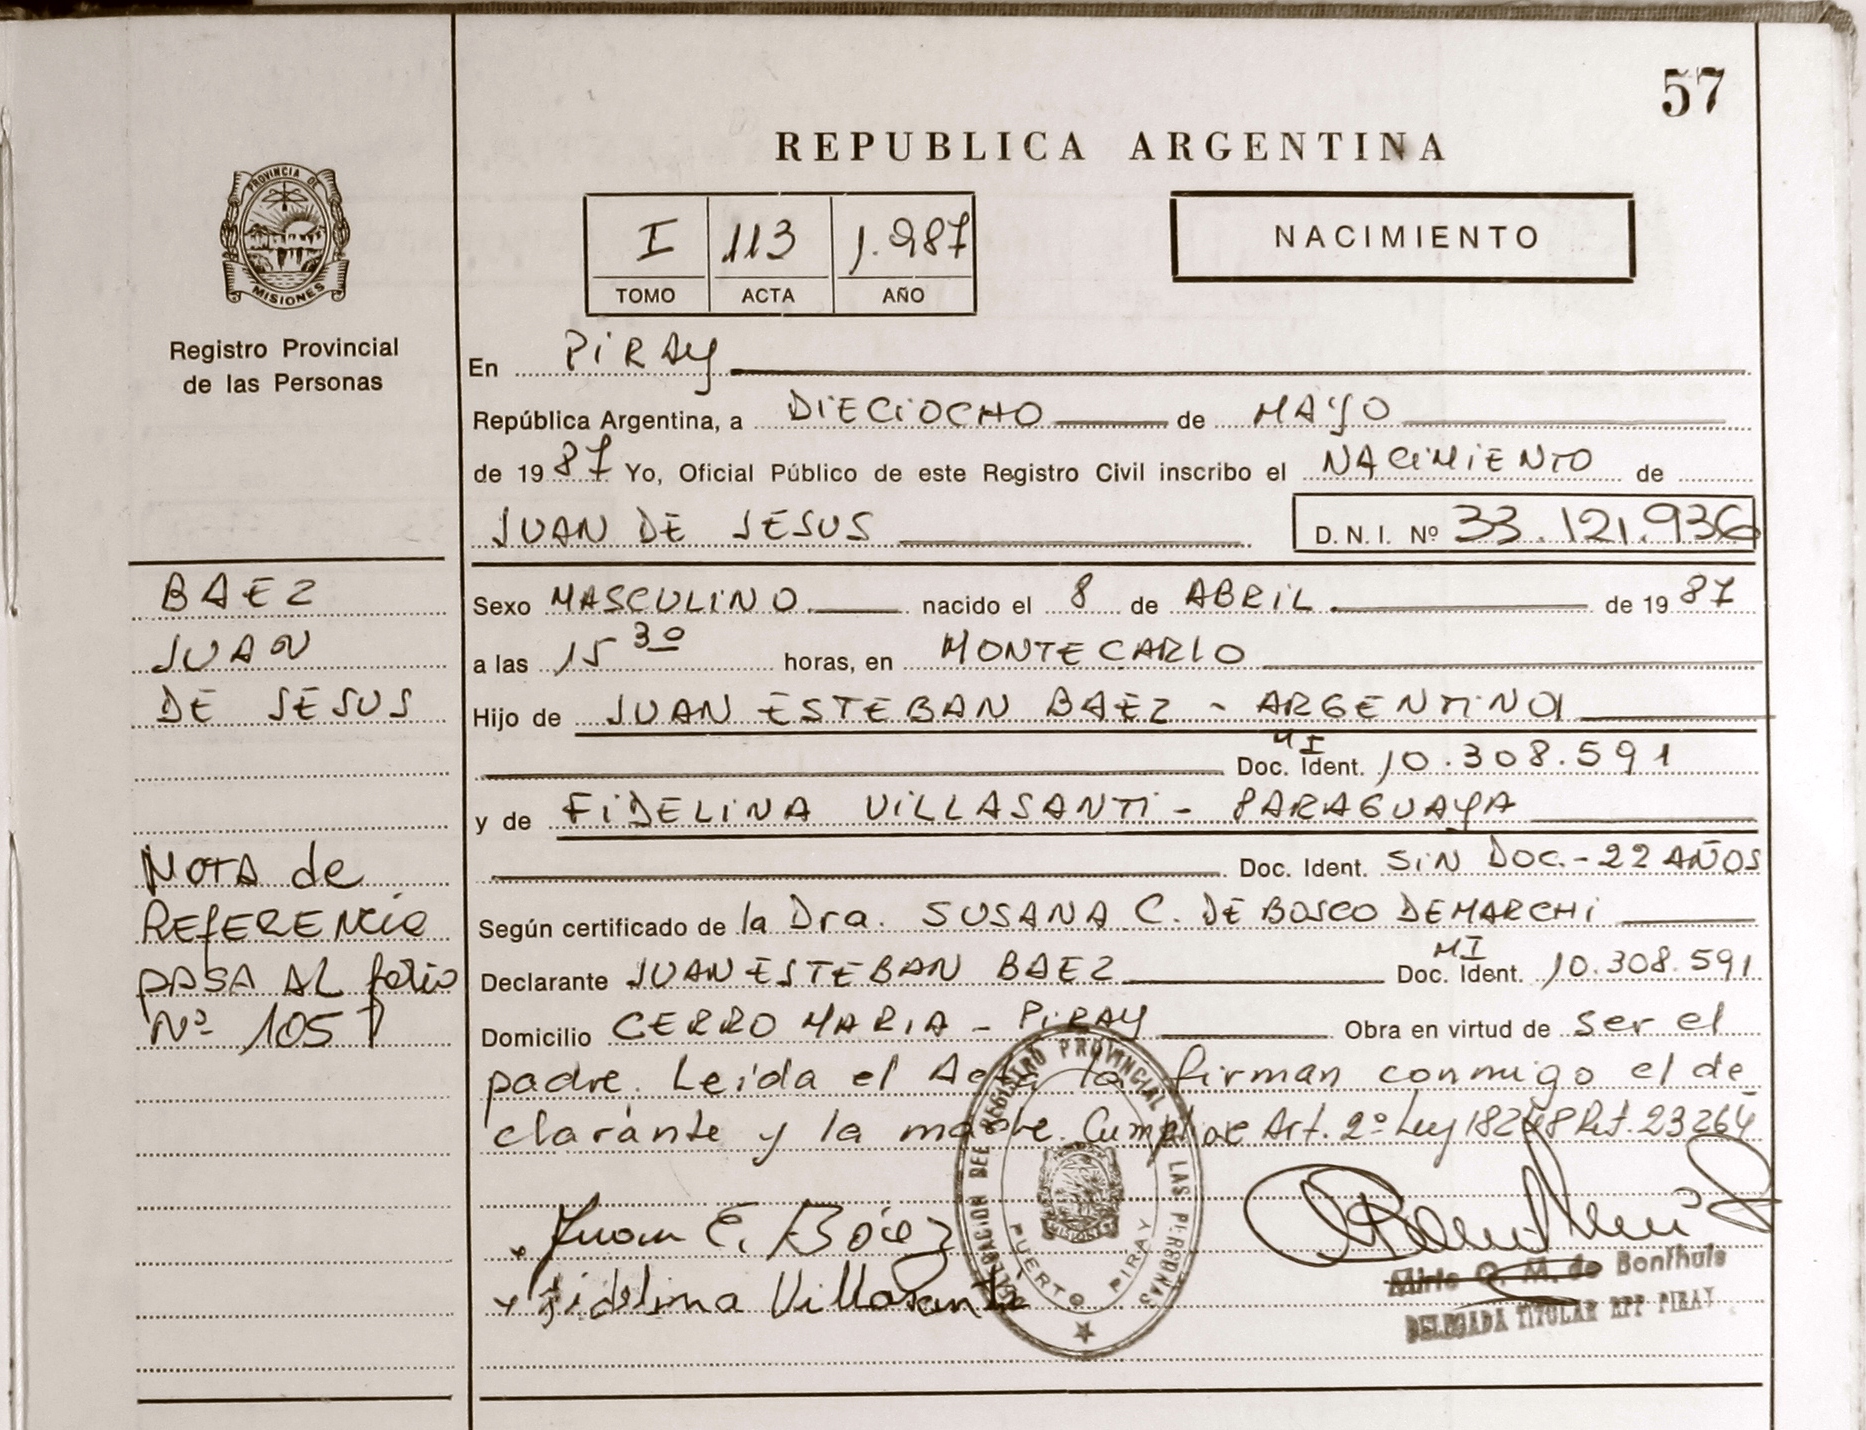 57
REPUBLICA ARGENTINA
PROVINCIA DE
MISIONES
Registro Provincial
de las Personas
I 113 1.987
TOMO ACTA AÑO
NACIMIENTO
En PIRAY
República Argentina, a DIECIOCHO de MAYO
de 1987 Yo, Oficial Público de este Registro Civil inscribo el NACIMIENTO de
JUAN DE JESUS D.N.I. Nº 33.121.936
BAEZ
JUAN
DE JESUS
Sexo MASCULINO nacido el 8 de ABRIL de 1987
a las 15 30 horas, en MONTECARLO
Hijo de JUAN ESTEBAN BAEZ - ARGENTINO
MI
Doc. Ident. 10.308.591
y de FIDELINA VILLASANTI - PARAGUAYA
Doc. Ident. SIN DOC.-22 AÑOS
Según certificado de la Dra. SUSANA C. DE BOSCO DEMARCHI
MI
Declarante JUAN ESTEBAN BAEZ Doc. Ident. 10.308.591
Domicilio CERRO MARIA - PIRAY Obra en virtud de ser el
padre. Leida el Acta la firman conmigo el de
clarante y la madre. Cumpliose Art. 2º Ley 18248 Ref. 23264
NOTA de
REFERENCIA
PASA AL folio
Nº 105
Juan E. Báez
Fidelina Villasanti
DELEGACION DEL REGISTRO PROVINCIAL DE LAS PERSONAS
PUERTO PIRAY
MISIONES
Mirta O. M. de Bonthuis
DELEGADA TITULAR RPP PIRAY